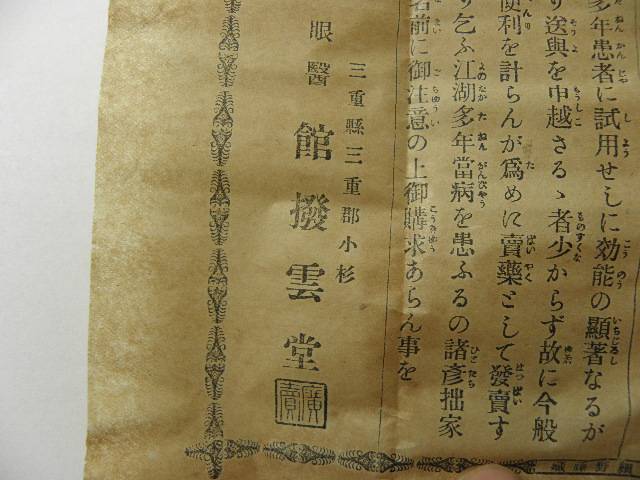 多年患者に試用せしに効能の顯著なるが
り送與を申越さるゝ者少からず故に今般
便利を計らんが爲めに賣藥として發賣す
り乞ふ江湖多年當病を患ふるの諸彥拙家
名前に御注意の上御購求あらん事を
三重縣三重郡小杉
眼醫 館撥雲堂
廣賣